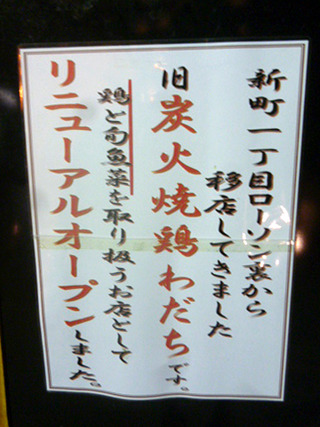 新町一丁目ローソン裏から
移店してきました
旧炭火焼鶏わだちです。
鶏と旬魚菜を取り扱うお店として
リニューアルオープンしました。